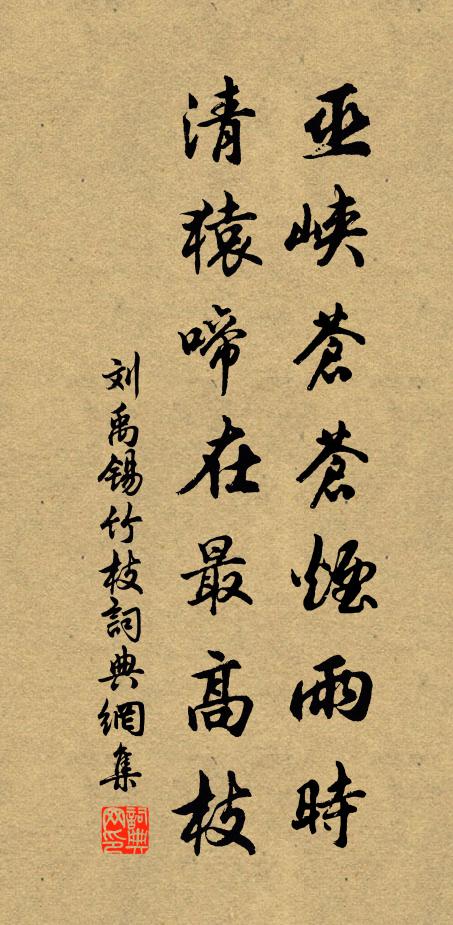 巫峽蒼蒼煙雨時
清猿啼在最高枝
刘禹錫竹枝詞典網集
詞典网印